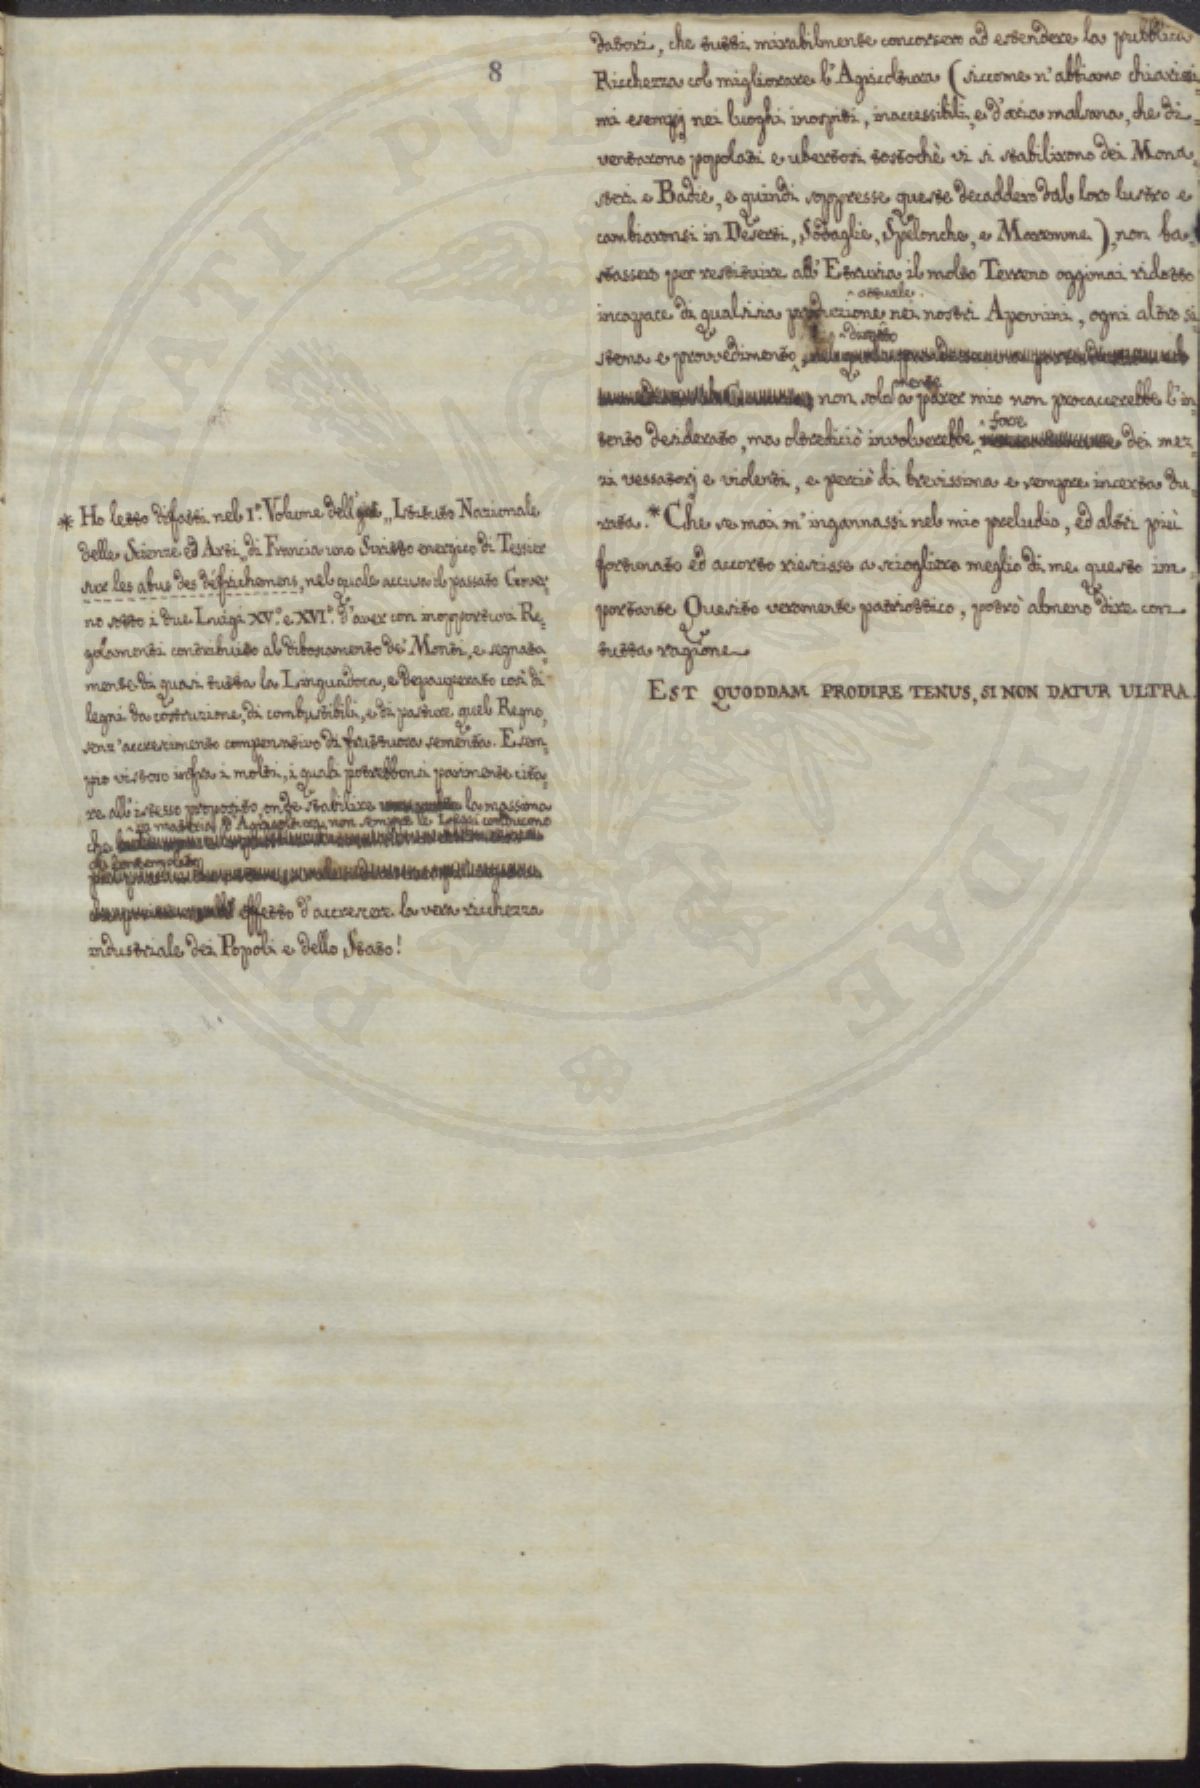 8
datori, che tutti mirabilmente concorsero ad estendere la pubblica
Ricchezza col migliorare l'Agricoltura (siccome n'abbiamo chiarissi-
mi esempj nei luoghi inospiti, inaccessibili, e d'aria malsana, che di-
ventarono popolati e ubertosi tostochè vi si stabilirono dei Mona-
steri e Badie, e quindi soppresse queste decaddero dal loro lustro e
cambiaronsi in Deserti, Sodaglie, Spelonche, e Maremme), non ba-
stassero per restituire all'Etruria il molto Terreno oggimai ridotto
incapace di qualsisia produzione ^attuale nei nostri Apennini, ogni altro si-
stema e provvedimento ^diretto
non solamente a parer mio non procaccerebbe l'in-
tento desiderato, ma oltrediciò involverebbe ^forse dei mez-
zi vessatorj e violenti, e perciò di brevissima e sempre incerta du-
rata.* Che se mai m'ingannassi nel mio preludio, ed altri più
fortunato ed accorto riescisse a sciogliere meglio di me questo im-
portante Quesito veramente patriottico, potrò almeno dire con
tutta ragione
EST QUODDAM PRODIRE TENUS, SI NON DATUR ULTRA.
* Ho letto difatti nel I.º Volume dell' „Istituto Nazionale
delle Scienze ed Arti„ di Francia uno Scritto energico di Tessier
sur les abus des défrichemens, nel quale accusa il passato Gover-
no sotto i due Luigi XV.º e XVI.º d'aver con inopportuni Re-
golamenti contribuito al diboscamento de' Monti, e segnata-
mente di quasi tutta la Linguadoca, e depauperato così di
legni da costruzione, di combustibili, e di pasture quel Regno,
senz'accrescimento compensativo di fruttuosa sementa. Esem-
pio vistoso infra i molti, i quali potrebbonsi parimente cita-
re all'istesso proposito, onde stabilire la massima
che ^in materia d'Agricoltura non sempre le Leggi conducono
al contemplato
effetto d'accrescere la vera ricchezza
industriale dei Popoli e dello Stato!